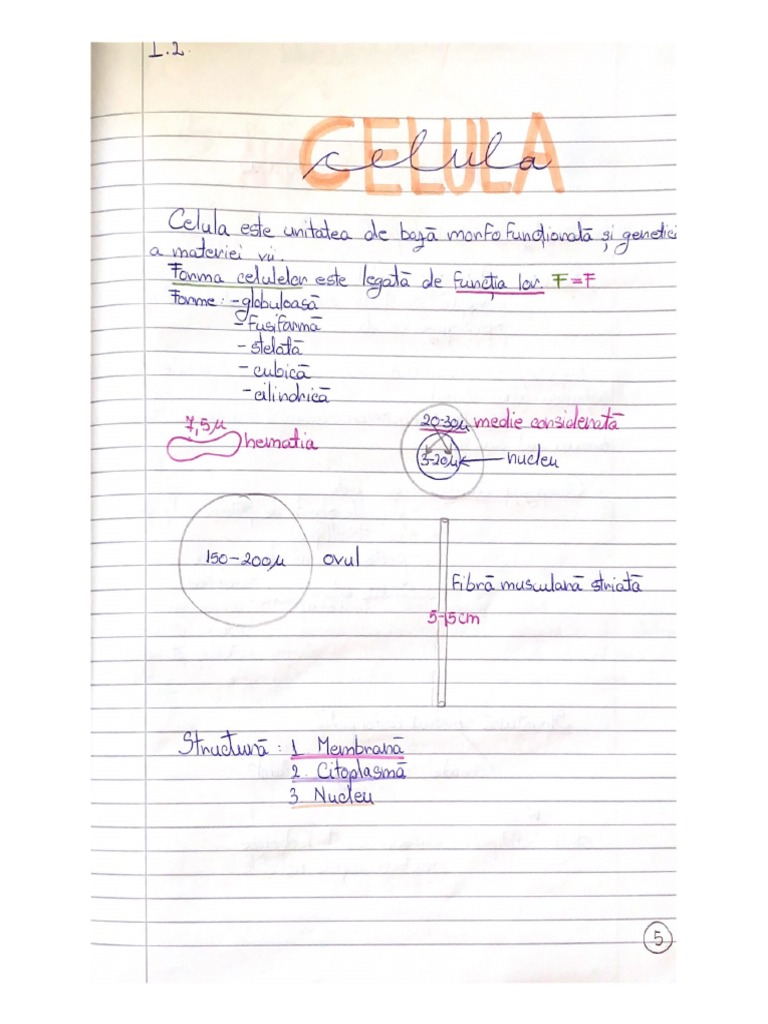 I.2.
CELULA
celula
Celula este unitatea de bază morfofuncțională și genetică
a materiei vii.
Forma celulelor este legată de funcția lor. F=F
Forme: - globuloasă
- fusiformă
- stelată
- cubică
- cilindrică
7,5µ
hematia
20-30µ medie considerată
3-20µ nucleu
150-200µ ovul
Fibră musculară striată
5-15cm
Structură: 1. Membrană
2. Citoplasmă
3. Nucleu
5